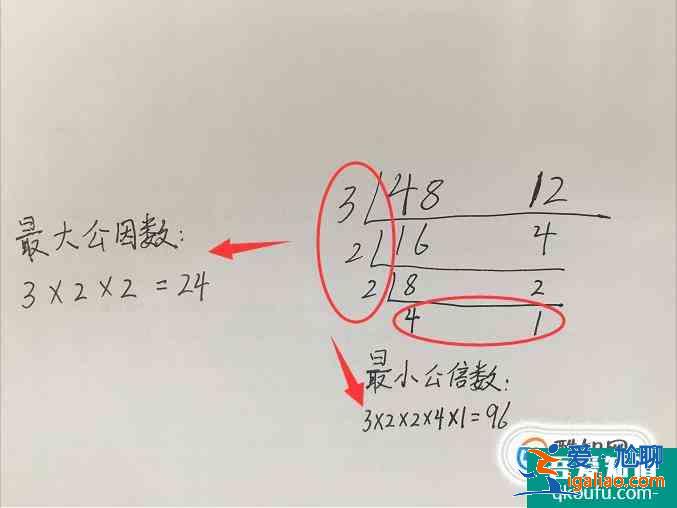 3 48 12
2 16 4
2 8 2
4 1
最大公因数:
3×2×2=24
最小公倍数:
3×2×2×4×1=96
爱尬聊
igaliao.com
qkoufu.com